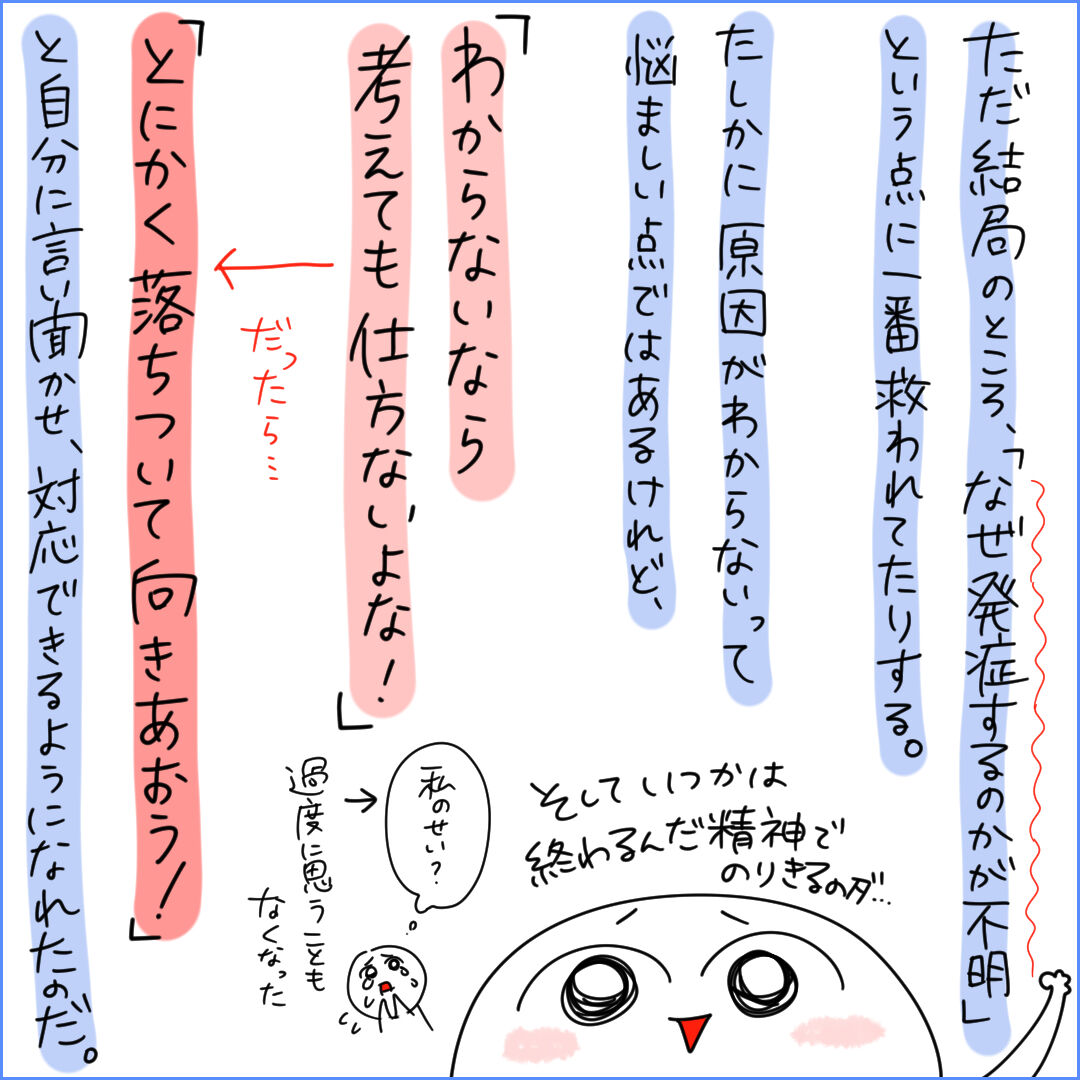 ただ結局のところ、「なぜ発症するのかが不明」
という点に一番救われてたりする。
たしかに原因がわからないって
悩ましい点ではあるけれど、
「わからないなら
考えても仕方ないよな！」
だったら…
「とにかく落ちついて向きあおう！」
と自分に言い聞かせ、対応できるようになれたのだ。
私のせい？
過度に思うことも
なくなった
そしていつかは
終わるんだ精神で
のりきるのダ…